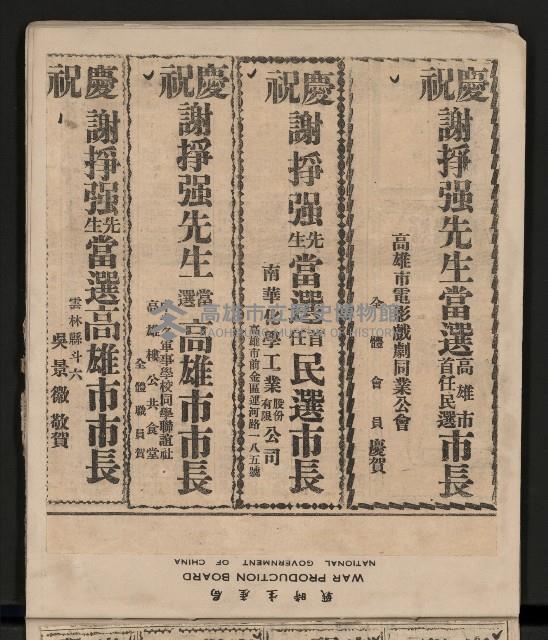 慶祝
謝掙强先生當選高雄市首任民選市長
高雄市電影戲劇同業公會
全體會員慶賀
慶祝
謝掙强先生當選首任民選市長
南華化學工業股份有限公司
高雄市前金區運河路一八五號
慶祝
謝掙强先生當選高雄市市長
軍事學校同學聯誼社
高雄樓公共食堂
全體職員賀
慶祝
謝掙强先生當選高雄市市長
雲林縣斗六
吳景徽敬賀
高雄市立歷史博物館
KAOHSIUNG MUSEUM OF HISTORY
戰時生產局
WAR PRODUCTION BOARD
NATIONAL GOVERNMENT OF CHINA